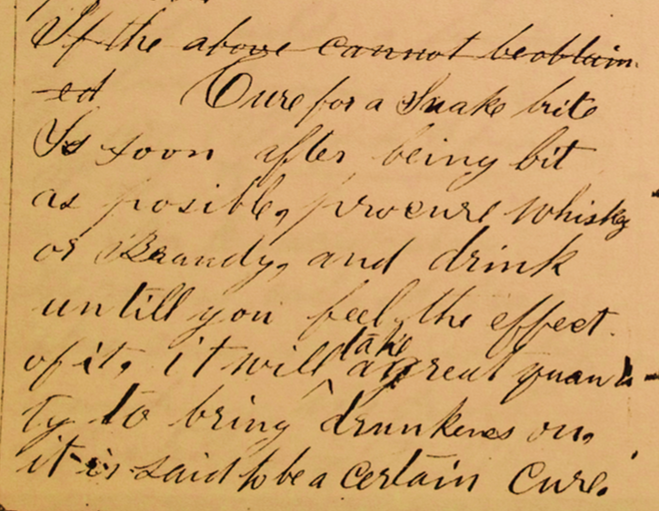 If the above cannot be obtain
-ed Cure for a Snake brite
Is soon after being bit
as posible, procure whiskey
or Brandy, and drink
untill you feel the effect.
of it, it will take a great quan-
ty to bring drunkenes on,
it is said to be a certain cure.